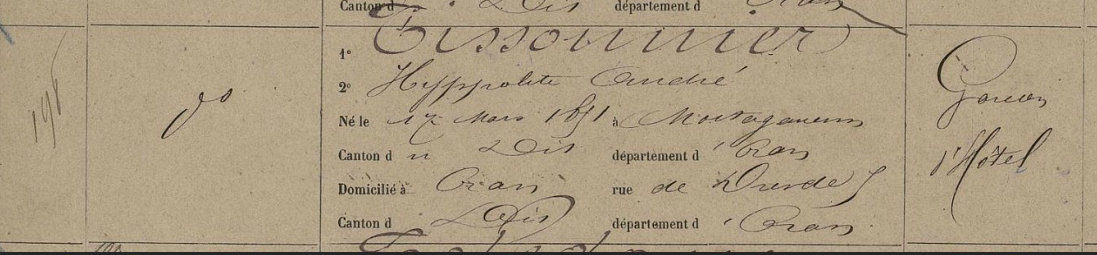 Canton d Dis département d Oran
198
do
1° Tissonnier
2° Hyppolite André
Né le 17 Mars 1851 à Mostaganem
Canton d u Dis département d' Oran
Domicilié à Oran rue de Dresde
Canton d Dis département d' Oran
Garcon
d'Hôtel